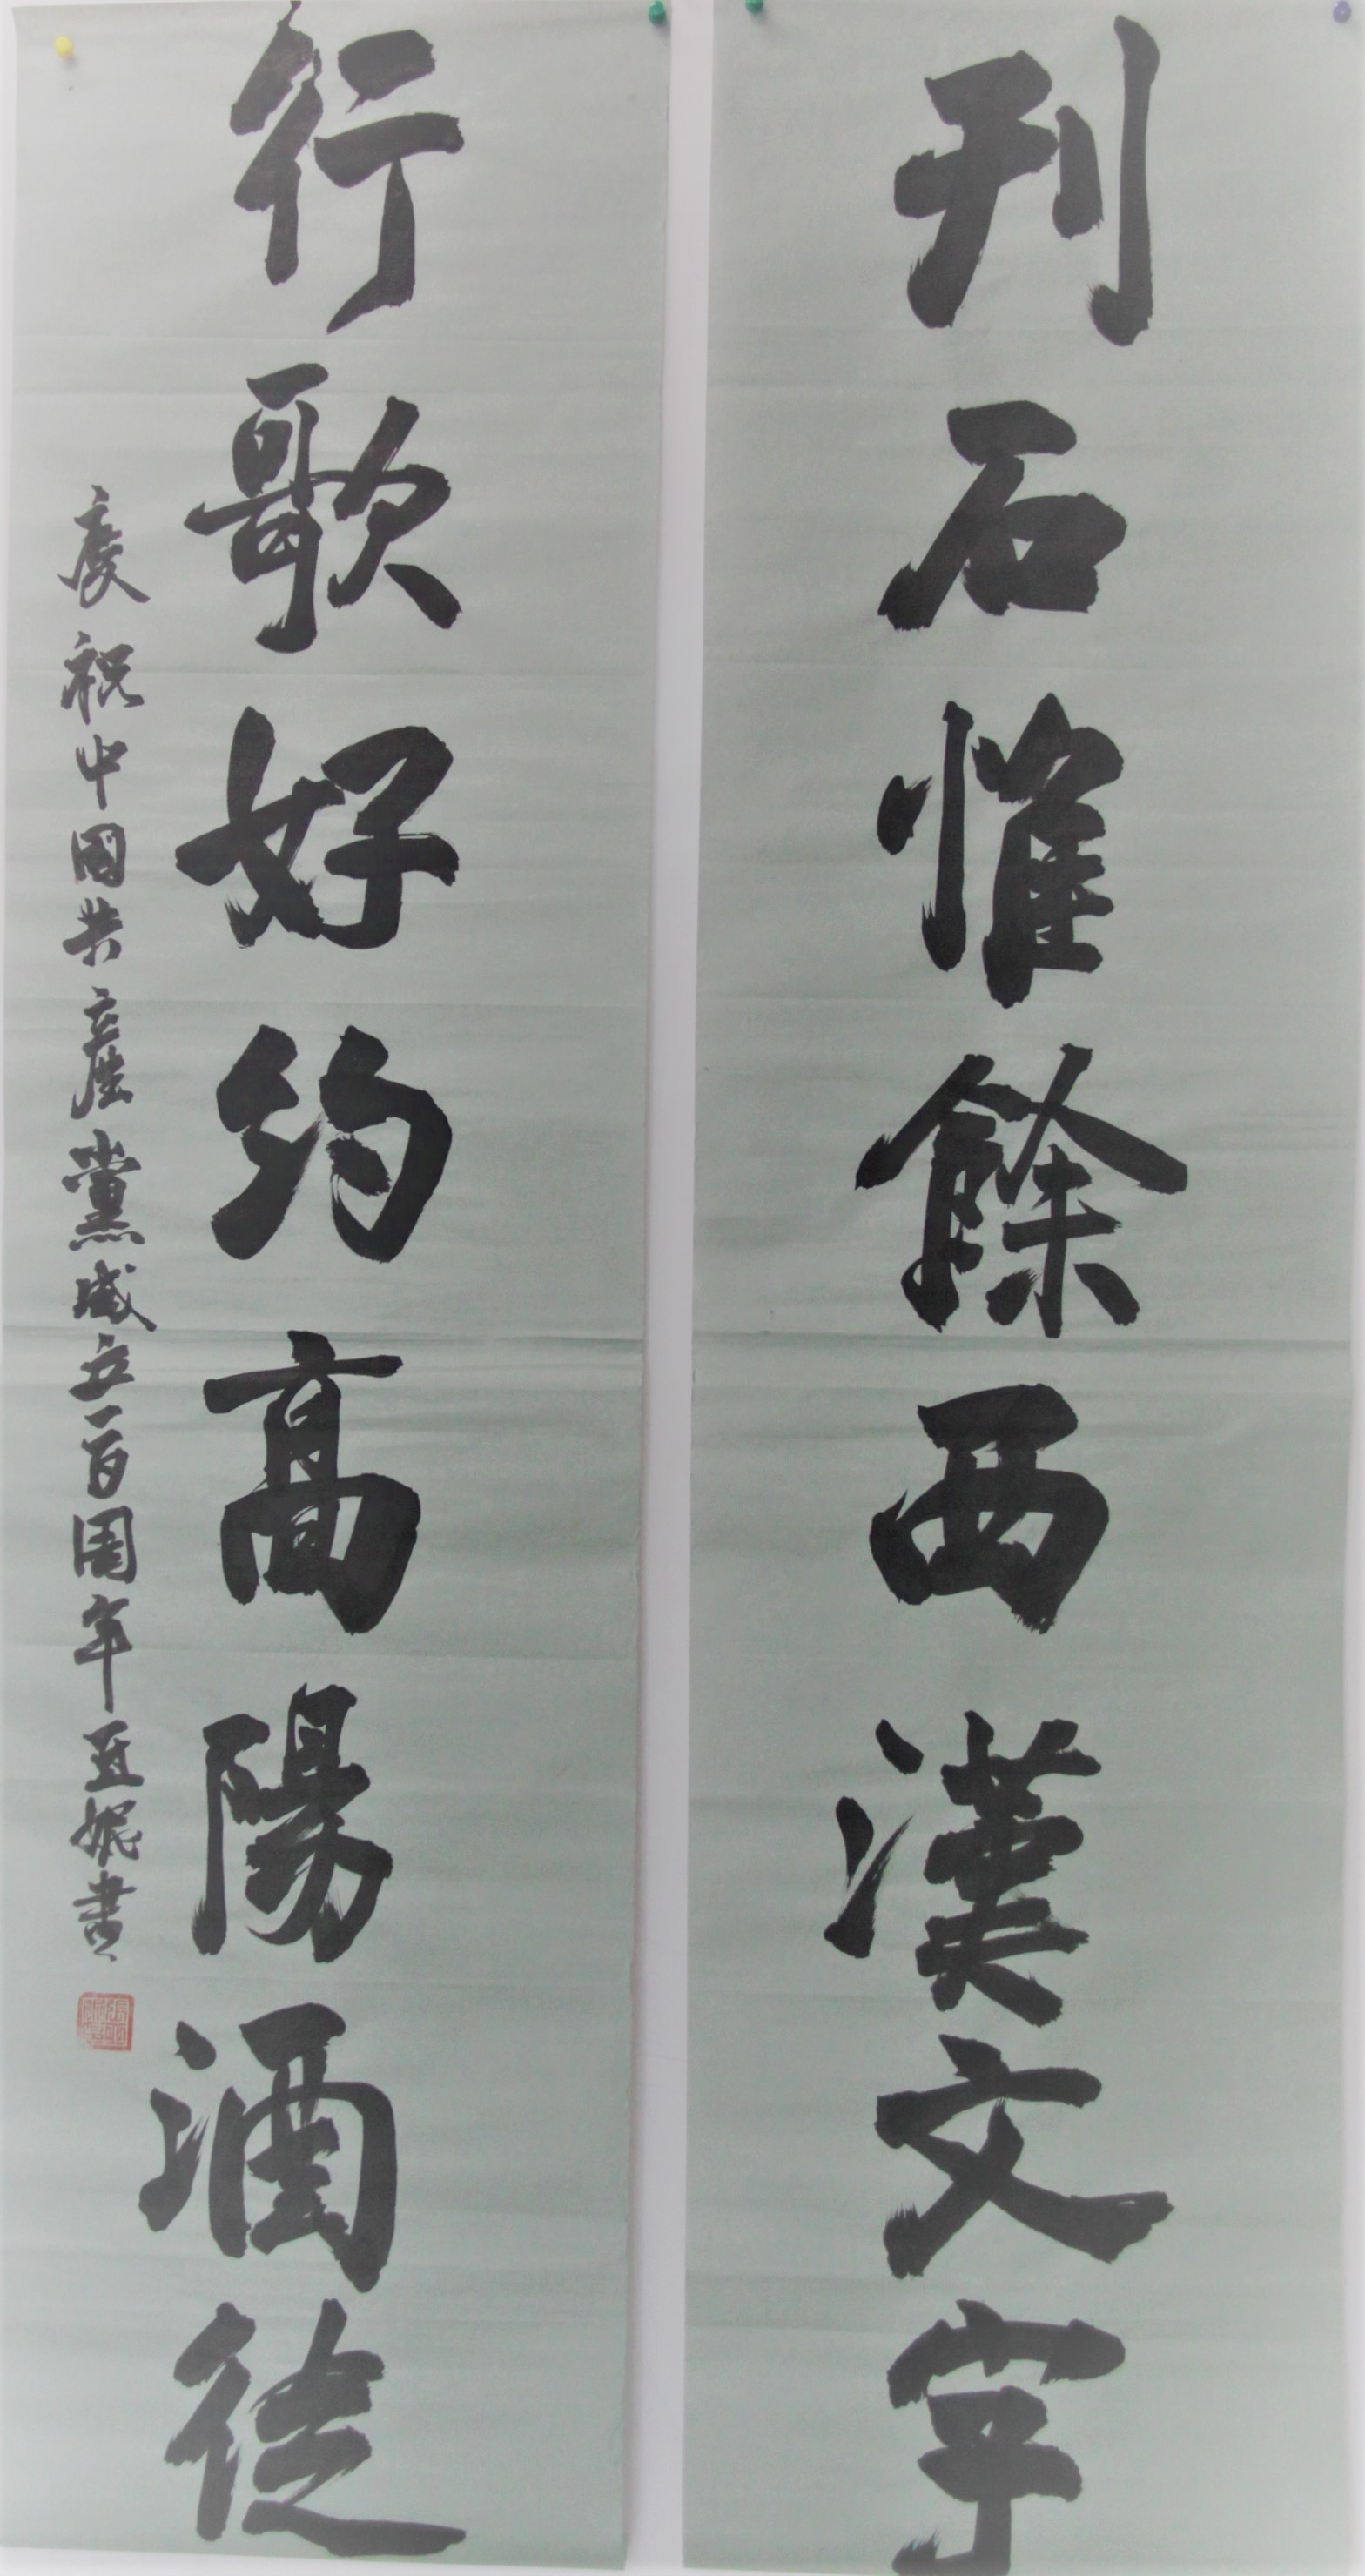 刊石惟餘西漢文字
行歌好約高陽酒徒
慶祝中國共產黨成立一百周年亚妮書